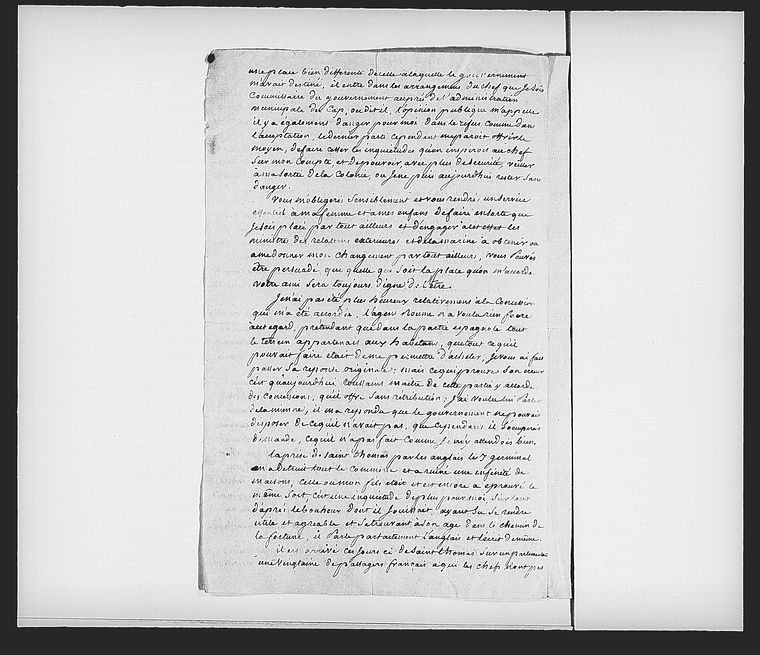 une place bien differente de celle a laquelle le gouvernement
m'avait destiné, il entre dans les arrangemens du chef que je sois
Commissaire du gouvernement auprès de l'administration
municipale du Cap, ou dit il, l'opinion publique m'appelle
il y a également danger pour moi dans le refus comme dans
l'acceptation, le dernier parti cependant me paroit offrir le
moyen, de faire cesser les inquietudes qu'on inspirois au chef
sur mon compte et de pouvoir, avec plus de securité, veiller
à ma sortie de la Colonie, ou je ne puis aujourdhui rester sans
danger.
Vous m'obligerés sensiblement et vous rendrés un service
essentiel à ma femme et a mes enfans de faire ensorte que
je sois placé par tout ailleurs et d'engager a cet effet les
ministres des relations exterieures et de la marine à obtenir ou
a me donner mon changement par tout ailleurs, vous pouvés
être persuadé, que quelle que soit la place qu'on m'accorde
votre ami sera toujours digne de l'être.
Je n'ai pas été plus heureux relativement à la Concession
qui m'a été accordée, l'agent Roume n'a voulu rien faire
a cet egard, pretendant que dans la partie espagnole tout
le terrein appartenait aux habitans, que tout ce qu'il
pouvait faire etait de me permettre d'acheter, je vous ai fait
passer sa reponse originale; mais ce qui prouve son erreur
c'est qu'aujourdhui Toussaint maitre de cette partie y accorde
des Concessions, qu'il offre sans retribution; j'ai voulu lui parler
de la mienne, il m'a repondu que le gouvernement ne pouvait
disposer de ce qu'il n'avait pas, que cependant il s'occuperait
demande, ce qu'il n'a pas fait comme je m'y attendois bien.
la prise de Saint Thomas par les anglais le 7 germinal
en a detruit tout le commerce et a ruiné une infinité de
maisons, celle ou mon fils etait et est encore a eprouvé le
même sort c'est une inquietude de plus pour moi surtout
d'après le bonheur dont il jouissoit, ayant su se rendre
utile et agreable et se trouvant à son age dans le chemin de
la fortune, il parle parfaitement l'anglais et l'ecrit de même.
il est arrivé ces jours ci de Saint Thomas sur un parlementaire
une vingtaine de passagers français a qui les chefs n'ont pas